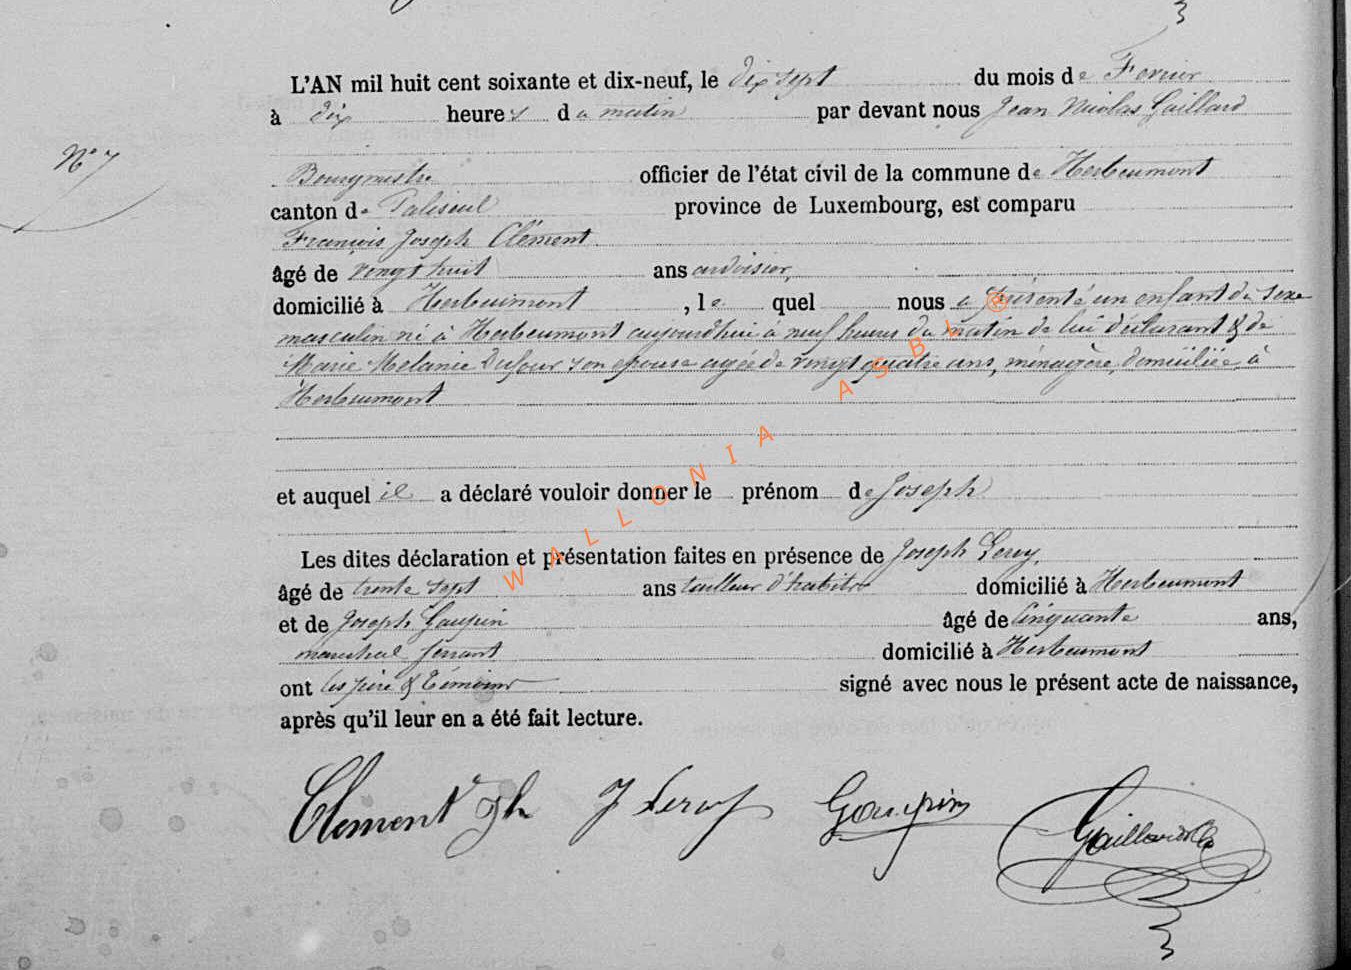 L'AN mil huit cent soixante et dix-neuf, le dix sept du mois de Fevrier
à dix heures du matin par devant nous Jean Nicolas Gaillard
N° 7
Bourgmestre officier de l'état civil de la commune de Herbeumont
canton de Paliseul province de Luxembourg, est comparu
François Joseph Clément
âgé de vingt huit ans ardoisier,
domicilié à Herbeumont, lequel nous a présenté un enfant du sexe
masculin né à Herbeumont aujourdhui à neuf heures du matin de lui déclarant & de
Marie Melanie Dufour son épouse agée de vingt quatre ans, ménagère, domiciliée à
Herbeumont
et auquel il a déclaré vouloir donner le prénom de Joseph
Les dites déclaration et présentation faites en présence de Joseph Leroy,
âgé de trente sept ans tailleur d'habits domicilié à Herbeumont
et de Joseph Goupin âgé de Cinquante ans,
marechal ferrant domicilié à Herbeumont
ont les père & témoins signé avec nous le présent acte de naissance,
après qu'il leur en a été fait lecture.
Clement Jh J Leroy Goupin Gaillard
WALLONIA ASBL ®